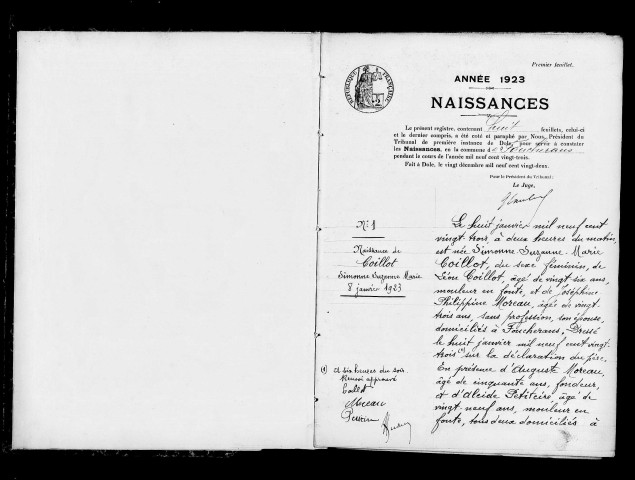 Premier feuillet.
ANNÉE 1923
NAISSANCES
RÉPUBLIQUE FRANÇAISE
Le présent registre, contenant huit feuillets, celui-ci
et le dernier compris, a été coté et paraphé par Nous, Président du
Tribunal de première instance de Dole, pour servir à constater
les Naissances, en la commune de Foucherans
pendant le cours de l'année mil neuf cent vingt-trois.
Fait à Dole, le vingt décembre mil neuf cent vingt-deux.
Pour le Président du Tribunal:
Le Juge,
N° 1
Naissance de
Coillot
Simonne Suzanne Marie
8 janvier 1923
Le huit janvier mil neuf cent
vingt-trois, à deux heures du matin,
est née Simonne-Suzanne-Marie
Coillot, du sexe féminin, de
Léon Coillot, âgé de vingt six ans,
mouleur en fonte, et de Joséphine
Philippine Moreau, âgée de vingt
trois ans, sans profession, son épouse,
domiciliés à Foucherans. Dressé
le huit janvier mil neuf cent vingt-
trois (1) sur la déclaration du père.
En présence d'Auguste Moreau,
âgé de cinquante ans, fondeur,
et d'Alcide Petitcire, âgé de
vingt-neuf ans, mouleur en
fonte, tous deux domiciliés à
(1) à six heures du soir.
Renvoi approuvé
Coillot
Moreau